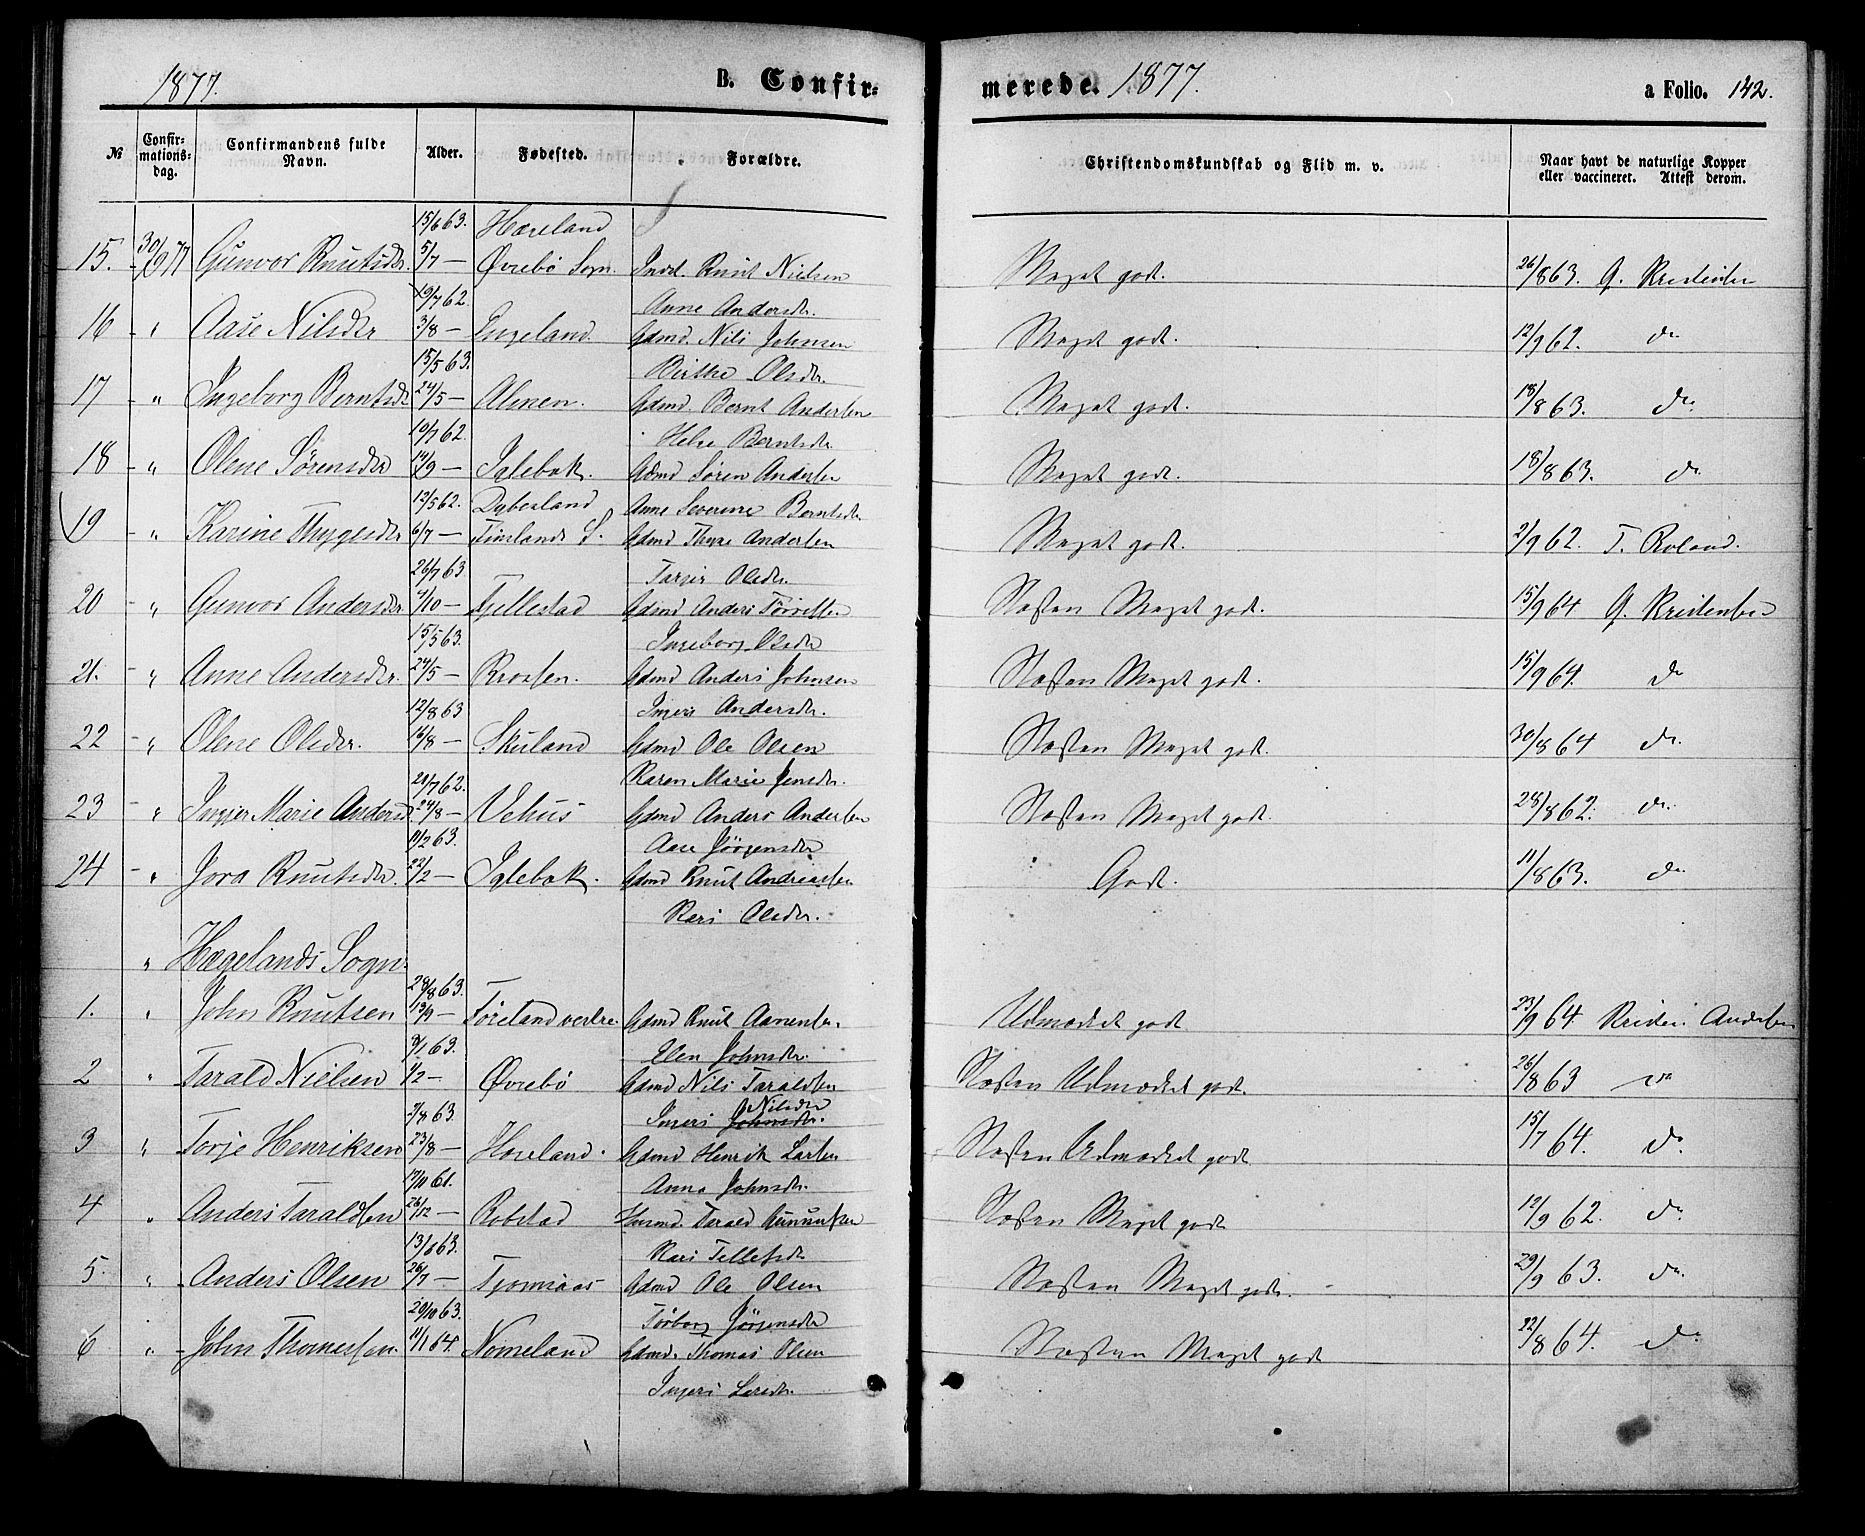 1877. B. Confir- merede. 1877. a Folio. 142.
№ Confir-mations-dag. Confirmandens fulde Navn. Alder. Fødested. Forældre. Christendomskundskab og Flid m. v. Naar havt de naturlige Kopper eller vaccineret. Attest derom.
15/6 63. Hæreland
15. 30/9 77 Gunvor Knutsdr. 5/7 — Øvrebø Sogn. Knut Nielsen Meget godt. 26/8 63.
19/7 62. Anne Andersdr.
16 " Aase Nilsdr 3/8 — Engeland. Gdmd. Nils Johnsen Meget godt. 12/9 62. do
15/5 63. Birthe Olsdr.
17 " Ingeborg Berntsdr 24/5 — Almen. Gdmd. Bernt Andersen Meget godt. 18/8 63. do
19/7 62. Helje Berntsdr.
18 " Olene Sørensdr 14/9 — Iglebæk. Gdmd Søren Andersen Meget godt. 18/8 63. do
12/5 62. Anne Severine Berntsdr.
19 " Karine Thygesdr 6/7 — Finslands S. Gdmd Thyge Andersen Meget godt. 2/9 62. T. Roland.
26/7 63. Olsdr.
20 " Gunvor Andersdr 4/10 — Fjellestad Gdmd Anders Næsten Meget godt. 15/9 64
15/5 63. Ingeborg Olsdr
21. " Anne Andersdr. 24/5 — Krossen. Gdmd Anders Johnsen Næsten Meget godt. 15/9 64. do
12/8 63 Andersdr.
22 " Olene Olsdr. 16/8 — Skuland Gdmd Ole Olsen Næsten Meget godt. 30/8 64 do.
29/7 62. Karen Marie Jensdr.
23 " Inger Marie Andersd. 24/8 — Vehus Gdmd Anders Andersen Næsten Meget godt. 28/8 62. do.
11/2 63. Aase Jørgensdr
24 " Jora Knutsdr. 22/2 — Iglebæk. Gdmd Knut Andreassen Godt. 11/8 63. do.
Kari Olsdr.
" Hægelands Sogn
28/8 63.
1. " John Knutsen 13/9 — Føreland vestre Gdmd Knut Aanensen. Udmærket godt 23/9 64 Andersen
9/1 63. Elen Johnsdr.
2 " Tarald Nielsen 1/2 — Øvrebø Gdmd Nils Taraldsen Næsten Udmærket godt. 26/8 63 do
9/8 63. Ingeri Johnsdr. Nilsdr
3 " Torje Henriksen 23/8 — Horeland. Gdmd Henrik Larsen Næsten Udmærket godt 15/7 64. do.
17/10 61. Anna Johnsdr.
4 " Anders Taraldsen 26/12 — Robstad Husmd. Tarald Gunnufsen Næsten Meget godt 12/9 62. do.
13/6 63. Kari Tellefsdr
5. " Anders Olsen 26/7 — Tjomsaas Gdmd Ole Olsen Næsten Meget godt. 29/9 63. do.
20/10 63. Torborg Jørgensdr
6 " John Thomessen. 11/1 64. Nomeland Gdmd. Thomas Olsen Næsten Meget godt 22/8 64. do.
Ingeri